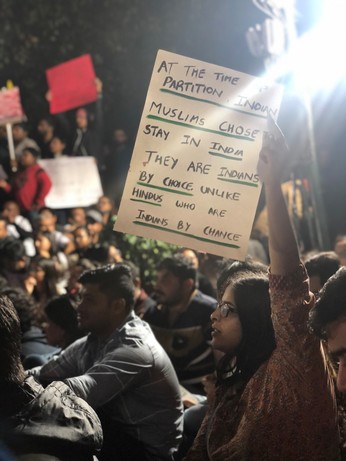 AT THE TIME
PARTITION, INDIAN
MUSLIMS CHOSE
STAY IN INDIA
THEY ARE INDIANS
BY CHOICE UNLIKE
HINDUS WHO ARE
INDIANS BY CHANCE